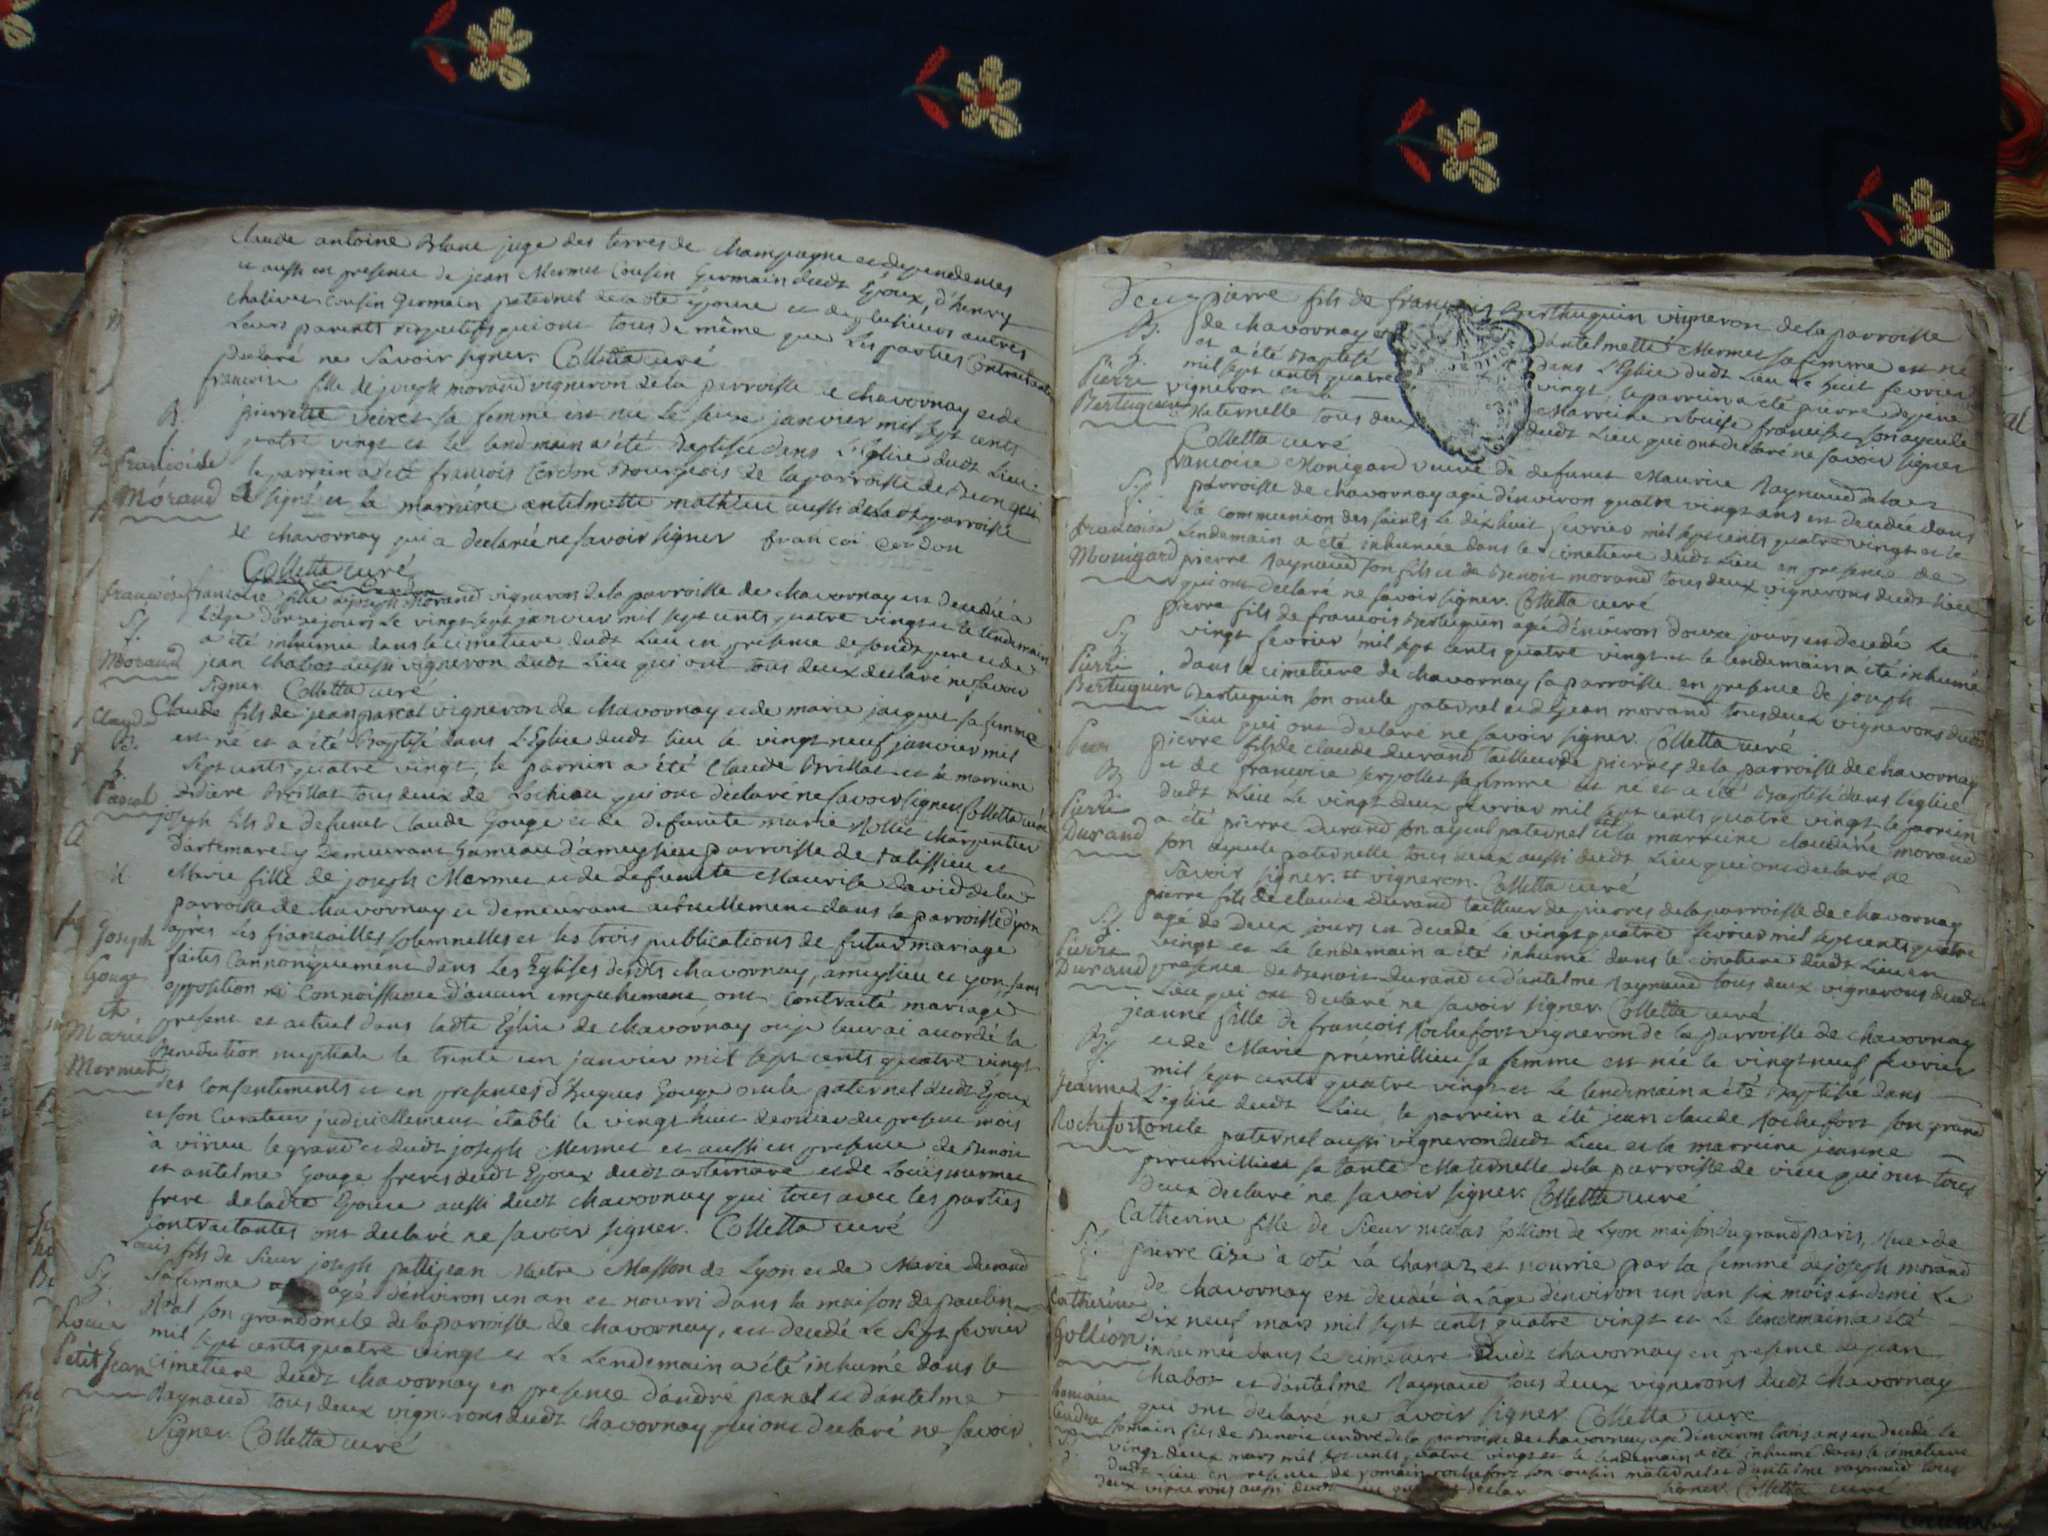 Claude antoine Blanc juge des terres de champagne et dependences
et aussi en presence de jean Mermet Cousin Germain dudt Epoux, d'henry
Cousin Germain paternel de la dte Epouse et de plusieurs autres
Leurs parents respectifs qui ont tous de même que les parties Contractantes
declaré ne savoir signer. Colletta curé
francoise fille de joseph morand vigneron de la parroisse de chavornay et de
pierrette veiret sa femme est née le janvier mil sept cents
B.
quatre vingt et le lendmain a été Baptisée dans L'Eglise dudt Lieu
francoise
Morand
le parrein a été francois Cerdon Bourgeois de la parroisse de Beon qui
a signé et la marreine antelmette mathieu aussi de la dte parroisse
de chavornay qui a declaré ne savoir signer francoi Cerdon
Colletta curé
francoise
francoise fille de joseph Morand vigneron de la parroisse de chavornay est decedée a
L'age d'onze jours le vingt sept janvier mil sept cents quatre vingt et le lendemain
S.
a été inhumée dans le cimetiere dudt Lieu en presence de sondt pere et de
Morand
jean Chabot aussi vigneron dudt Lieu qui ont tous deux declaré ne savoir
signer Colletta curé
Claude
Claude fils de jean pascal vigneron de chavornay et de marie jacquet sa femme
B.
est né et a été Baptisé dans L'Eglise dudt lieu le vingt neuf janvier mil
sept cents quatre vingt, le parrein a été Claude Brillat et la marreine
Pascal
Brillat tous deux de Lochieu qui ont declaré ne savoir signer Colletta curé
joseph fils de defunt Claude Gouge et de defunte marie Rollet charpentier
d'artemare y demeurant hameau d'ameyzieu parroisse de talissieu et
M.
Marie fille de joseph Mermet et de defunte Maurise david de la
parroisse de chavornay et demeurant actuellement dans la parroisse d'yon
Joseph
Gouge
et
Marie
Mermet
après les fiancailles solemnelles et les trois publications de futur mariage
faites cannoniquement dans les Eglises desdts chavornay, ameyzieu et yon, sans
opposition ni connoissance d'aucun empechement, ont contracté mariage
present et actuel dans ladte Eglise de chavornay ou je leur ai accordé la
Benediction nuptiale le trente un janvier mil sept cents quatre vingt
des consentements et en presences d'hugues Gouge oncle paternel dudt Epoux
et son Curateur judiciellement établi le vingt huit du present mois
à virieu le grand et dudt joseph Mermet et aussi en presence de Benoit
et antelme Gouge freres dudt Epoux dudt artemare et de Louis mermet
frere de ladte Epouse aussi dudt chavornay qui tous avec les parties
contractantes ont declaré ne savoir signer. Colletta curé
Louis fils de Sieur joseph pettijean Maitre Masson de Lyon et de Marie durand
S.
sa femme agé d'environ un an et nourri dans la maison de paulin
Louis
Petit Jean
son grand oncle de la parroisse de chavornay, est decedé Le sept fevrier
mil sept cents quatre vingt et Le Lendemain a été inhumé dans le
cimetiere dudt chavornay en presence d'andré et d'antelme
Raynaud tous deux vignerons dudt chavornay qui ont declaré ne savoir
signer. Colletta curé
pierre fils de francois Berthuguin vigneron de la parroisse
B.
de chavornay d'antelmette Mermet sa femme est né
et a été Baptisé dans L'Eglise dudt Lieu le huit fevrier
Pierre
Bertuguin
mil sept cents quatre vingt, le parrein a été pierre
vigneron et la Marreine francoise son ayeule
Maternelle tous deux dudt Lieu qui ont declaré ne savoir signer
Colletta curé
S.
francoise Monigard veuve de defunct Maurice Raynaud de la
parroisse de chavornay agée d'environ quatre vingt ans est decedée dans
la communion des saints le dix huit fevrier mil sept cents quatre vingt et le
francoise
Monigard
Lendemain a été inhumée dans le cimetiere dudt Lieu en presence de
pierre Raynaud son fils et de Benoit morand tous deux vignerons dudt Lieu
qui ont declaré ne savoir signer. Colletta curé
S.
pierre fils de francois Bertuguin agé d'environ douze jours est decedé Le
vingt fevrier mil sept cents quatre vingt et le lendemain a été inhumé
Pierre
Bertuguin
dans le cimetiere de chavornay sa parroisse en presence de joseph
Bertuguin son oncle paternel et de jean morand tous deux vignerons dudt
Lieu qui ont declaré ne savoir signer. Colletta curé
pierre fils de claude durand tailleur de pierres de la parroisse de chavornay
B.
et de francoise sa femme est né et a été Baptisé dans l'eglise
Pierre
Durand
dudt Lieu le vingt deux fevrier mil sept cents quatre vingt le parrein
a été pierre Durand son ayeul paternel et la marreine claudine morand
son ayeule paternelle tous deux aussi dudt Lieu qui ont declaré ne
savoir signer. et vigneron. Colletta curé
S.
pierre fils de claude durand tailleur de pierres de la parroisse de chavornay
agé de deux jours est decedé le vingt quatre fevrier mil sept cents quatre
Pierre
Durand
vingt et le lendemain a été inhumé dans le cimetiere dudt Lieu en
presence de Benoit durand et d'antelme Raynaud tous deux vignerons dudt
Lieu qui ont declaré ne savoir signer. Colletta curé
B.
jeanne fille de francois Rochefort vigneron de la parroisse de chavornay
et de Marie prumillieu sa femme est née le vingt neuf fevrier
Jeanne
Rochefort
mil sept cents quatre vingt et le lendemain a été Baptisée dans
L'eglise dudt Lieu, le parrein a été jean claude Rochefort son grand
oncle paternel aussi vigneron dudt Lieu et la marreine jeanne
prumillieu sa tante Maternelle de la parroisse de vieu qui ont tous
deux declaré ne savoir signer. Colletta curé
S.
Catherine fille de Sieur nicolas Gollion de Lyon maison du grand paris, rue de
pierre cize à coté La chana, et nourrie par la femme de joseph morand
Catherine
Gollion
de chavornay est decedée à l'age d'environ un an six mois et demi Le
Dix neuf mars mil sept cents quatre vingt et Le lendemain a été
inhumée dans Le cimetiere dudt chavornay en presence de jean
Chabot et d'antelme Raynaud tous deux vignerons dudt chavornay
qui ont declaré ne savoir signer Colletta curé
Romain
andré
Romain fils de Benoit andré de la parroisse de chavornay agé d'environ trois ans est decedé le
S.
vingt deux mars mil sept cents quatre vingt et le lendemain a été inhumé dans le cimetiere
dudt Lieu en presence de romain rochefort son cousin maternel et d'antelme raynaud tous
deux vignerons aussi dudt Lieu qui ont declar signer. Colletta curé